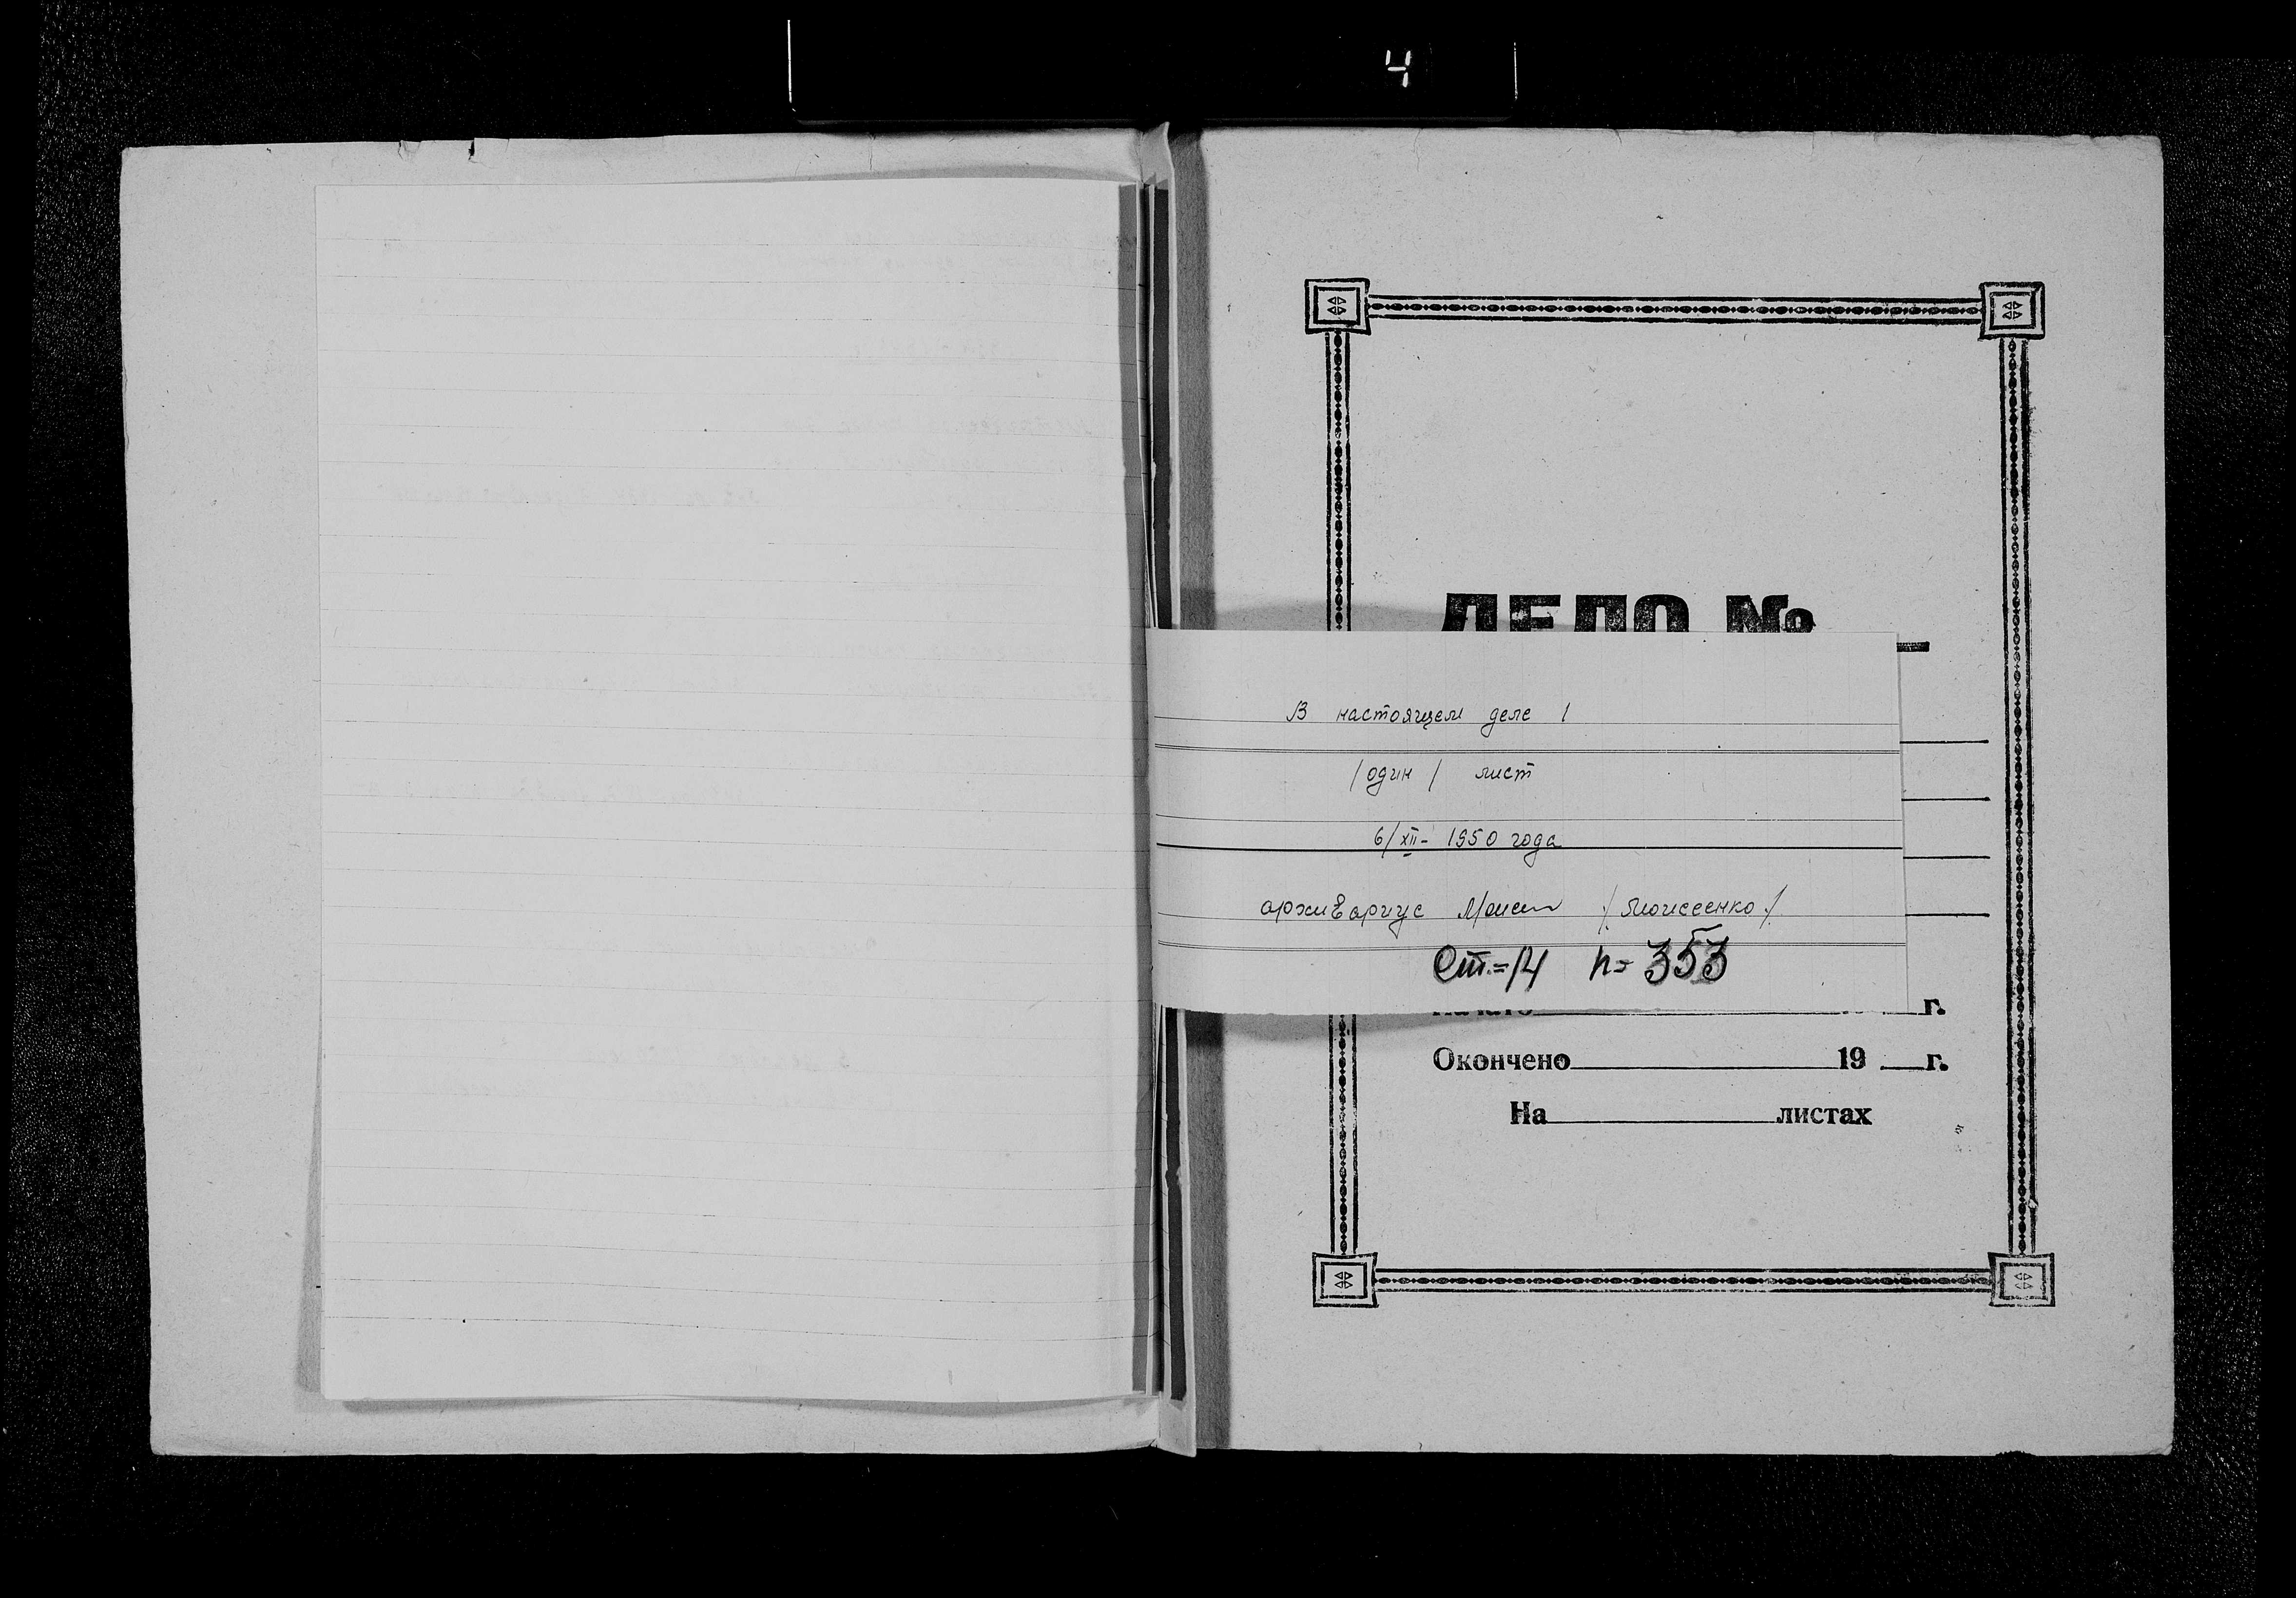 4
ДЕЛО №
В настоящем деле 1
/один/ лист
6/XII- 1950 года
архивариус /Моисеенко/
Ст.=14 п=353
Начато г.
Окончено 19 г.
На листах